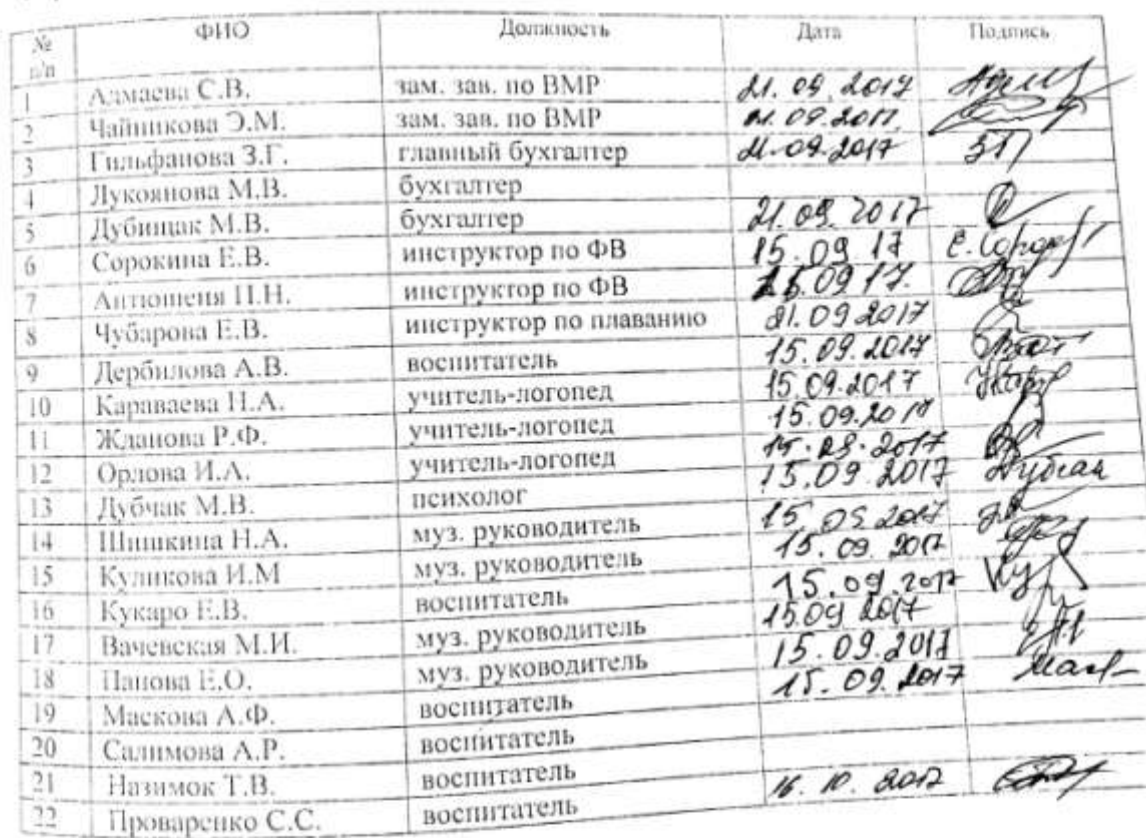 № п/п ФИО Должность Дата Подпись
1 Адмаева С.В. зам. зав. по ВМР 21.09.2017
2 Чайникова Э.М. зам. зав. по ВМР 21.09.2017
3 Гильфанова З.Г. главный бухгалтер 21.09.2017
4 Лукоянова М.В. бухгалтер
5 Дубищак М.В. бухгалтер 21.09.2017
6 Сорокина Е.В. инструктор по ФВ 15.09 17
7 Антюшеня П.Н. инструктор по ФВ 15.09 17.
8 Чубарова Е.В. инструктор по плаванию 21.09.2017
9 Дербилова А.В. воспитатель 15.09.2017
10 Караваева Н.А. учитель-логопед 15.09.2017
11 Жданова Р.Ф. учитель-логопед 15.09.2017
12 Орлова И.А. учитель-логопед 15.09.2017
13 Дубчак М.В. психолог 15.09 2017 Дубчак
14 Шишкина Н.А. муз. руководитель 15 09 2017
15 Куликова И.М муз. руководитель 15.09.2017
16 Кукаро Е.В. воспитатель 15.09.2017
17 Вачевская М.И. муз. руководитель 15.09 2017
18 Панова Е.О. муз. руководитель 15.09.2017
19 Маскова А.Ф. воспитатель 15.09.2017
20 Салимова А.Р. воспитатель
21 Назимок Т.В. воспитатель
22 Проваренко С.С. воспитатель 16.10.2017